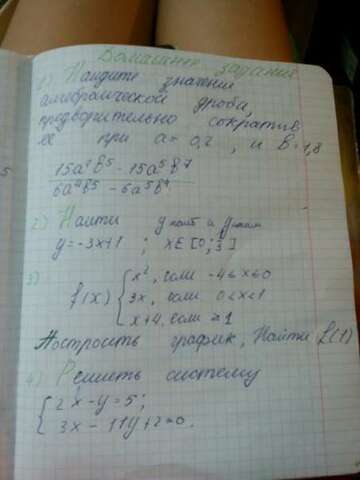 Домашнее задание
1) Найдите значение
алгебраической дроби,
предворительно сократив
её при a = 0,2, и b = 1,8
15a⁷b⁵ - 15a⁵b⁷
6a⁴b⁵ - 6a⁵b⁴
2) Найти yнаиб и yнаим
y = -3x+1 ; x∈[0;3]
3)
f(x) { x², если -4≤x≤0
3x, если 0<x<1
x+4, если ≥1
Построить график, Найти f(1)
4) Решить систему
{ 2x - y = 5;
3x - 11y + 2 = 0.